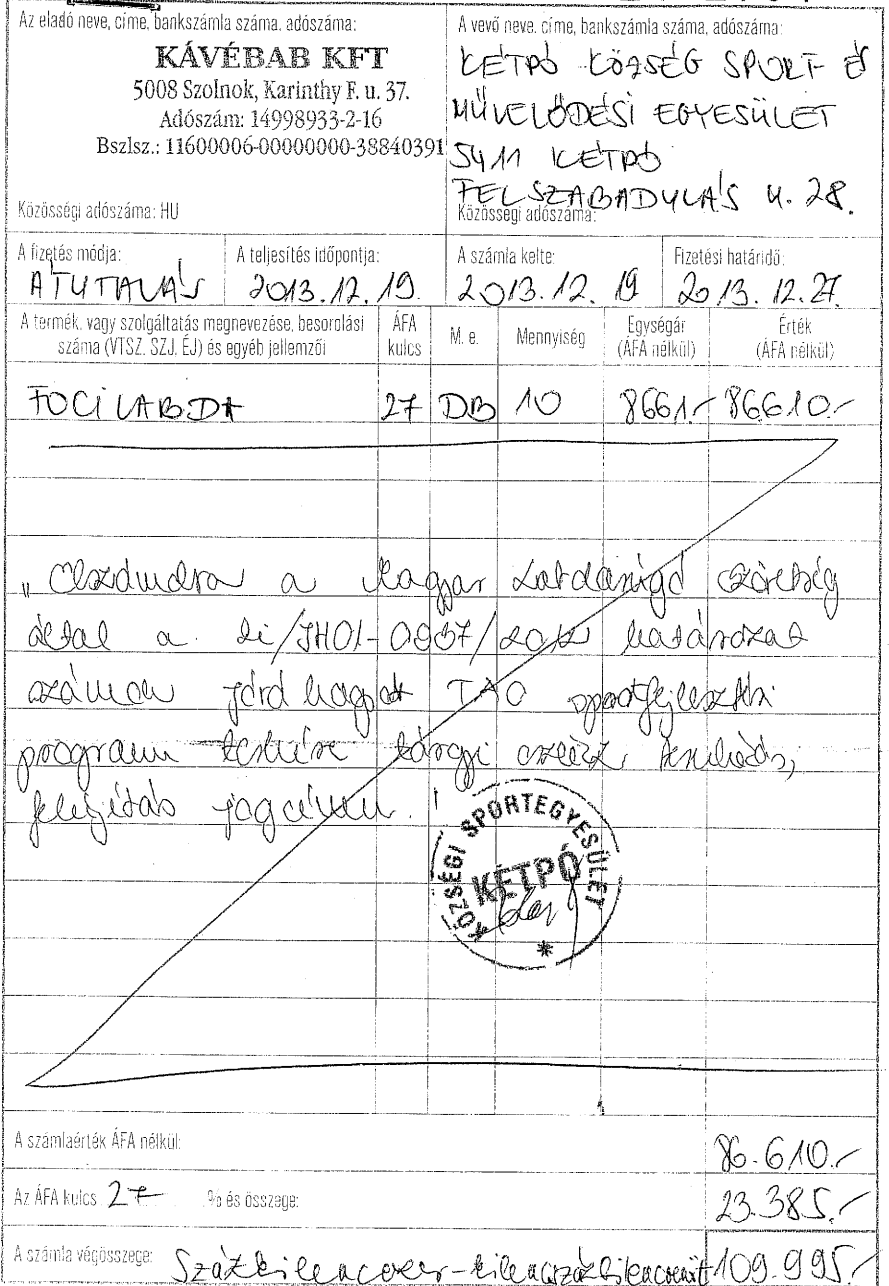 Az eladó neve, címe, bankszámla száma, adószáma:
KÁVÉBAB KFT
5008 Szolnok, Karinthy F. u. 37.
Adószám: 14998933-2-16
Bszlsz.: 11600006-00000000-38840391
Közösségi adószáma: HU
A vevő neve, címe, bankszámla száma, adószáma:
KÉTPÓ KÖZSÉG SPORT ÉS
MŰVELŐDÉSI EGYESÜLET
5411 KÉTPÓ
FELSZABADULÁS U. 28.
Közösségi adószáma:
A fizetés módja: A teljesítés időpontja: A számla kelte: Fizetési határidő:
ÁTUTALÁS 2013.12.19. 2013.12.19 2013.12.27.
A termék, vagy szolgáltatás megnevezése, besorolási száma (VTSZ, SZJ, ÉJ) és egyéb jellemzői ÁFA kulcs M. e. Mennyiség Egységár (ÁFA nélkül) Érték (ÁFA nélkül)
FOCILABDA 27 DB 10 8661.- 86610.-
„ Elszámolva a Magyar Labdarúgó Szövetség
által a be/JH01-0937/2012 határozat
számon jóváhagyott TAO sportfejlesztési
program terhére tárgyi eszköz beruházás,
felújítás jogcímen!
KÖZSÉGI SPORTEGYESÜLET
KÉTPÓ
A számlaérték ÁFA nélkül: 86.610.-
Az ÁFA kulcs 27 % és összege: 23.385.-
A számla végösszege: Százkilencezer-kilencszázkilencvenöt 109.995.-